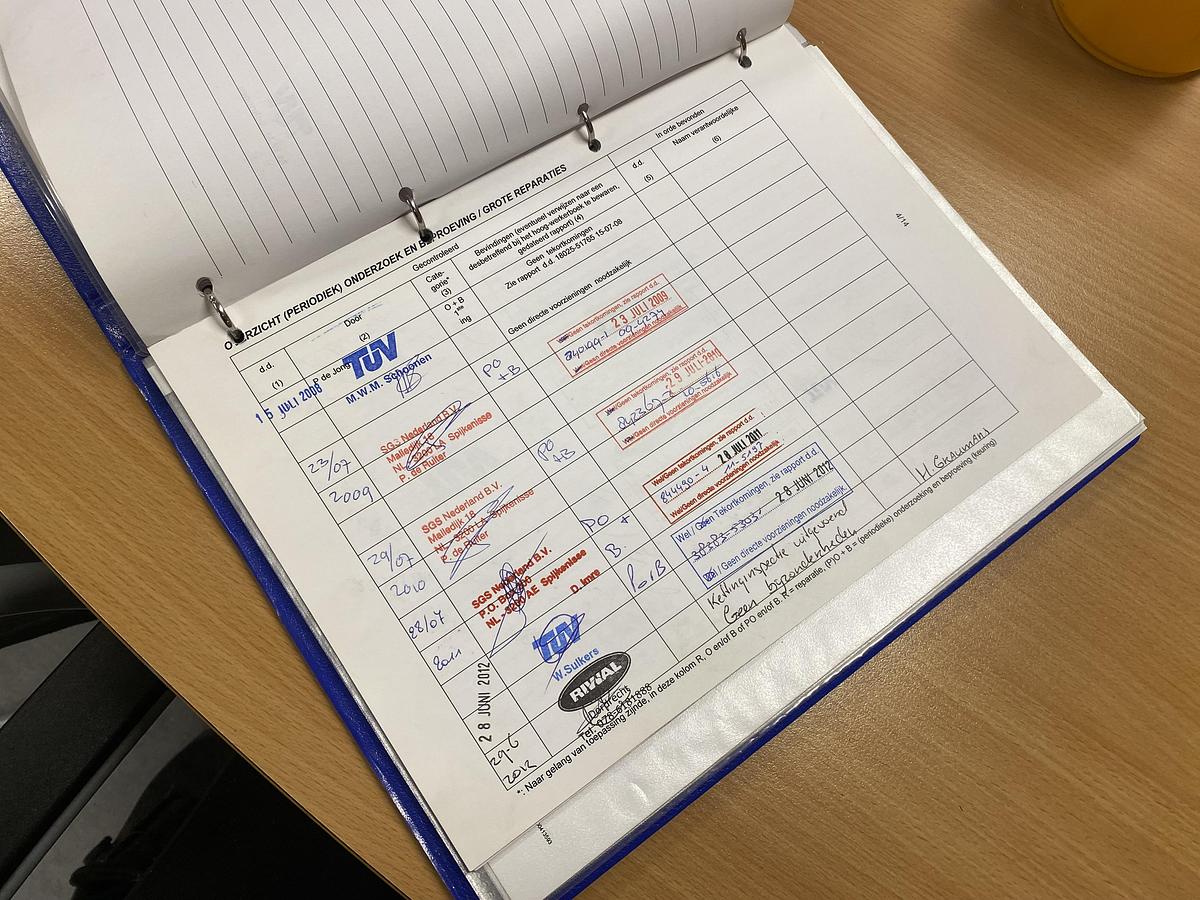 OVERZICHT (PERIODIEK) ONDERZOEK EN BEPROEVING / GROTE REPARATIES
Gecontroleerd
In orde bevonden
d.d.
(1)
Door
(2)
Cate-
gorie*
(3)
Bevindingen (eventueel verwijzen naar een
desbetreffend bij het hoog-werkerboek te bewaren,
gedateerd rapport) (4)
d.d.
(5)
Naam verantwoordelijke
(6)
15 JULI 2008
P de Jong
TÜV
M.W.M. Schoonen
O + B
1ste
ing
Geen tekortkomingen
Zie rapport d.d. 18025-51765 15-07-08
Geen directe voorzieningen noodzakelijk
23/07
2009
SGS Nederland B.V.
Malledijk 18
NL - 3200 LA Spijkenisse
P. de Ruiter
PO
+B
Wel/Geen tekortkomingen, zie rapport d.d.
23 JULI 2009
840199-1 09-4277
Wel/Geen directe voorzieningen noodzakelijk
29/07
2010
SGS Nederland B.V.
Malledijk 18
NL - 3200 LA Spijkenisse
P. de Ruiter
PO
+B
Wel/Geen tekortkomingen, zie rapport d.d.
29 JULI 2010
Wel/Geen directe voorzieningen noodzakelijk
28/07
2011
SGS Nederland B.V.
P.O. Box
NL - 3200 AE Spijkenisse
D. Imre
PO +
B
Wel/Geen tekortkomingen, zie rapport d.d.
28 JULI 2011
844490-4 11-5197
Wel/Geen directe voorzieningen noodzakelijk
28 JUNI 2012
TÜV
W.Sulkers
PorB
Wel / Geen Tekortkomingen, zie rapport d.d.
28 JUNI 2012
Wel / Geen directe voorzieningen noodzakelijk
29-6
2012
RIWAL
Dordrecht
Tel: 078-6181888
Kettinginspectie uitgevoerd
Geen bijzonderheden
H. Graumans
*: Naar gelang van toepassing zijnde, in deze kolom R, O en/of B of PO en/of B. R = reparatie, (P)O + B = (periodieke) onderzoeking en beproeving (keuring)
4/14